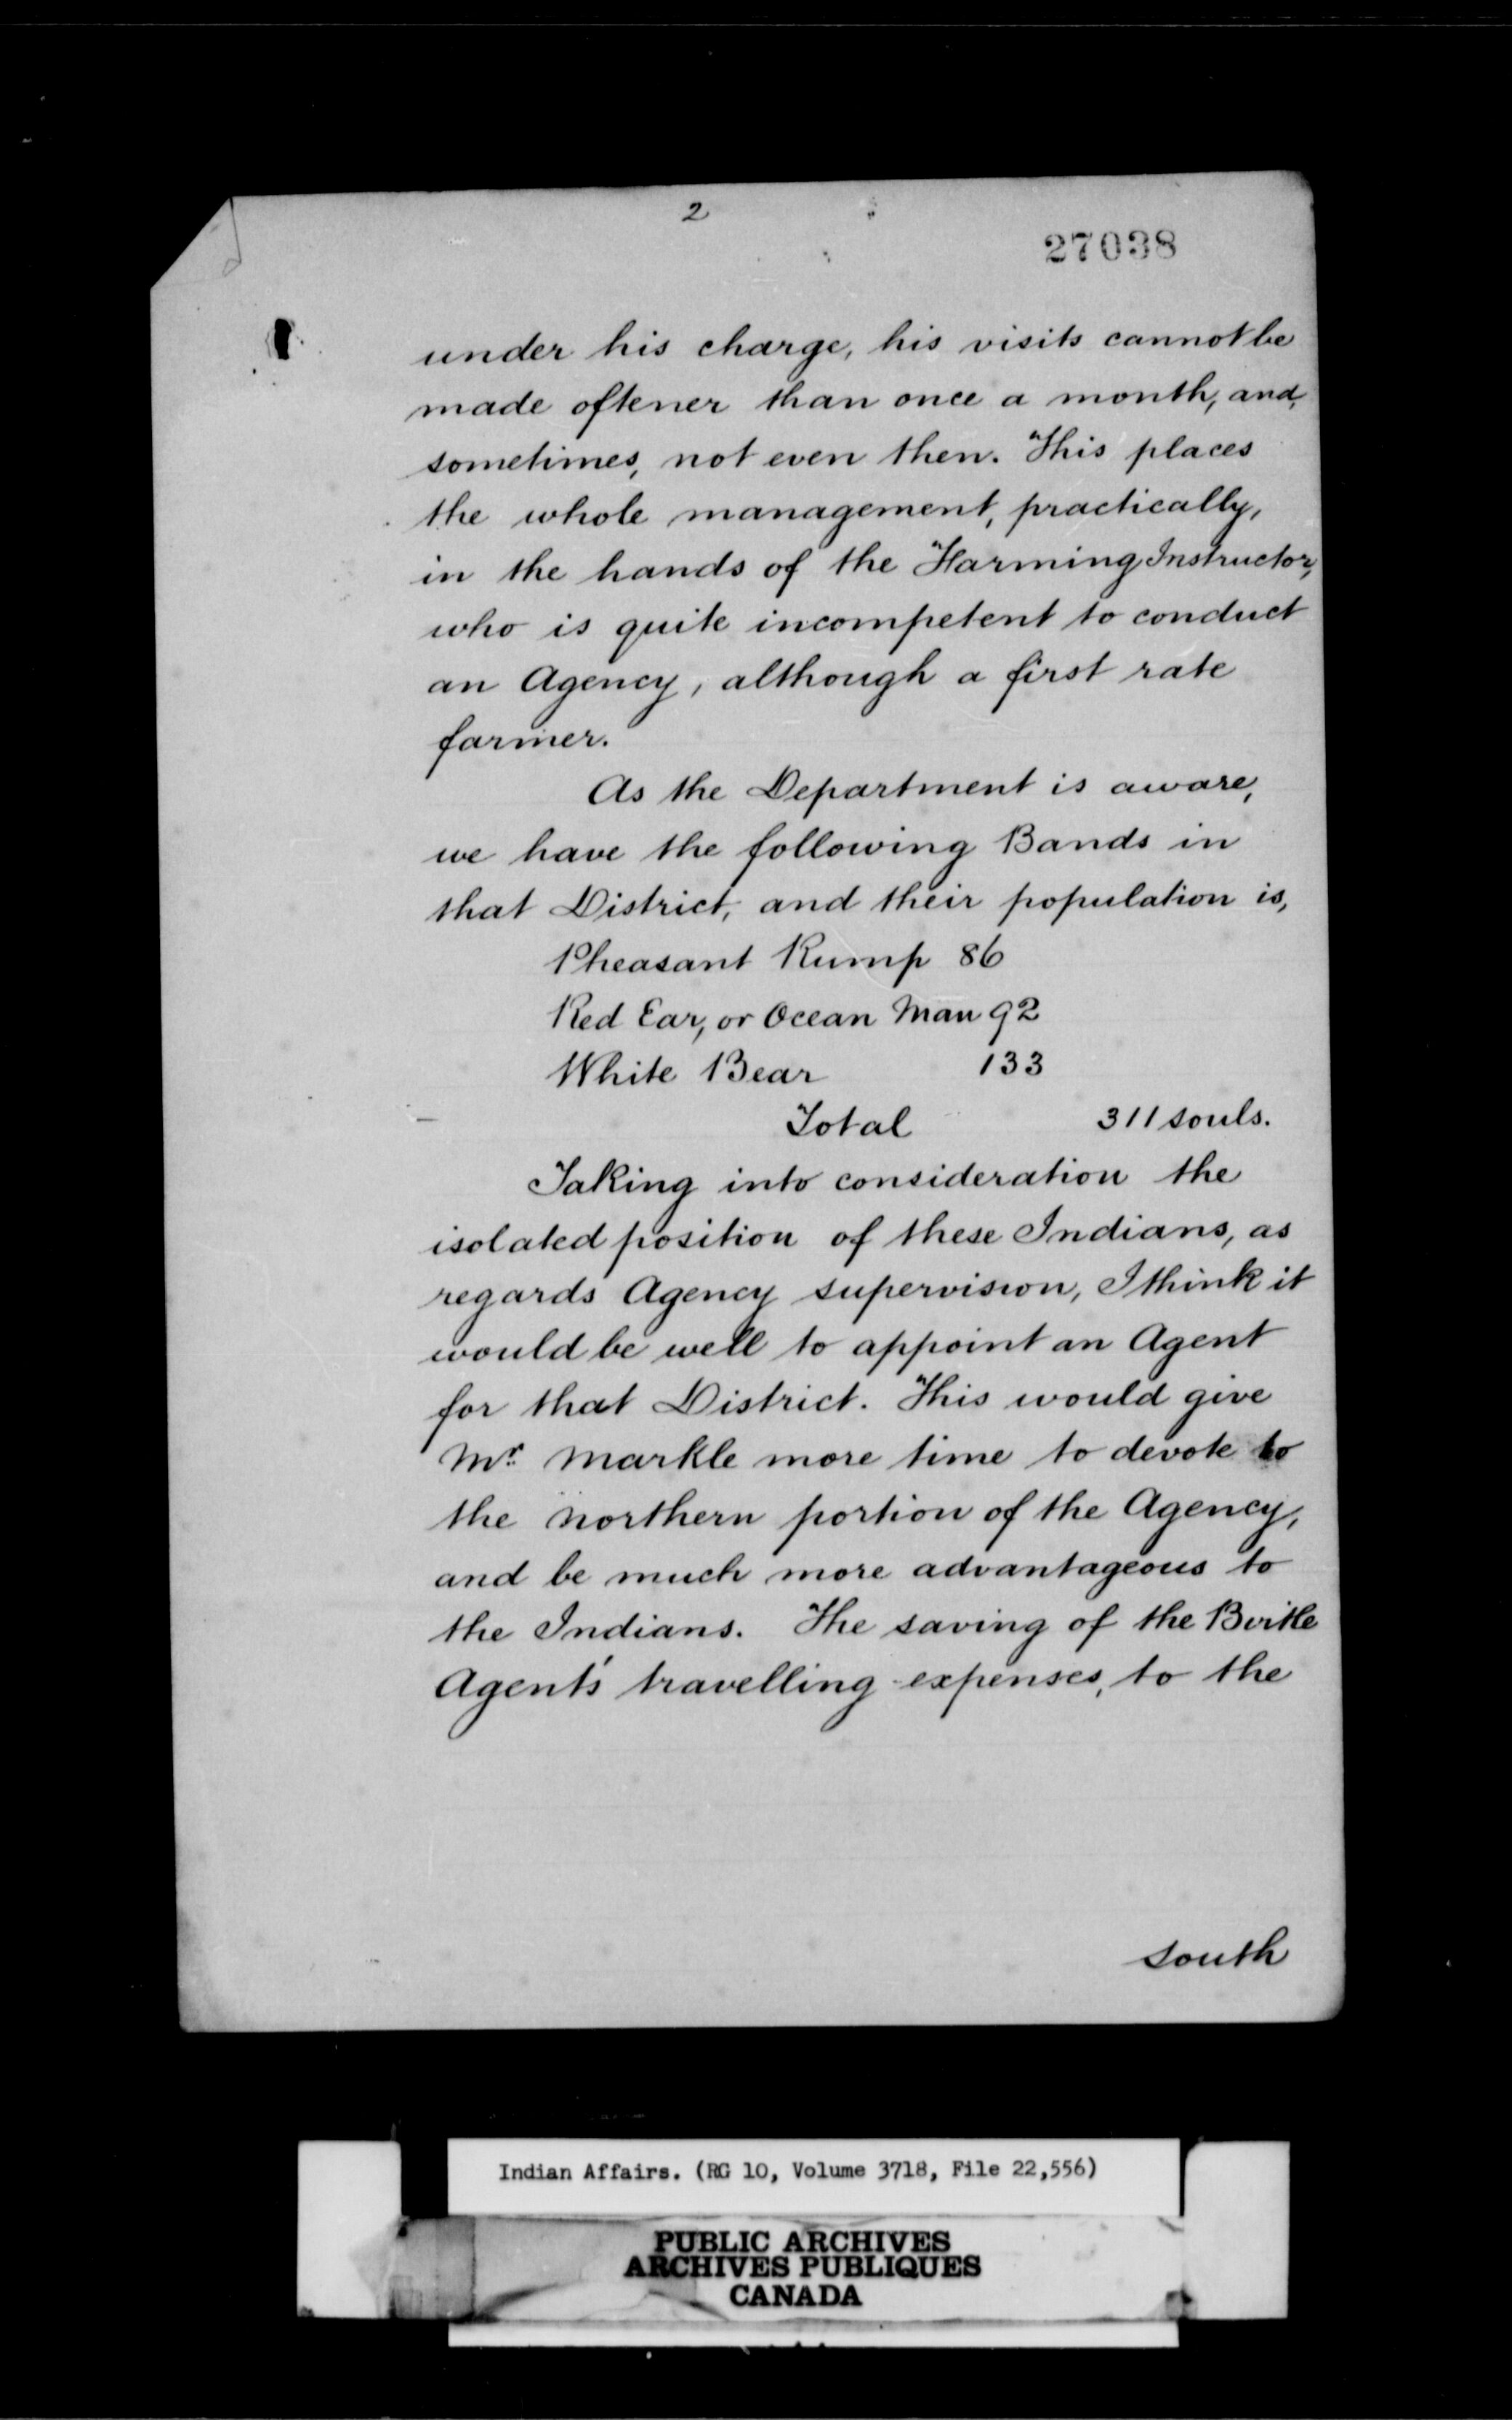 2
27038
under his charge, his visits cannot be
made oftener than once a month, and,
sometimes, not even then. This places
the whole management, practically,
in the hands of the Farming Instructor,
who is quite incompetent to conduct
an Agency, although a first rate
farmer.
As the Department is aware,
we have the following Bands in
that District, and their population is,
Pheasant Rump 86
Red Ear, or Ocean Man 92
White Bear 133
Total 311 souls.
Taking into consideration the
isolated position of these Indians, as
regards Agency supervision, I think it
would be well to appoint an Agent
for that District. This would give
Mr. Markle more time to devote to
the northern portion of the Agency,
and be much more advantageous to
the Indians. The saving of the Birtle
Agent's travelling expenses, to the
south
Indian Affairs. (RG 10, Volume 3718, File 22,556)
PUBLIC ARCHIVES
ARCHIVES PUBLIQUES
CANADA